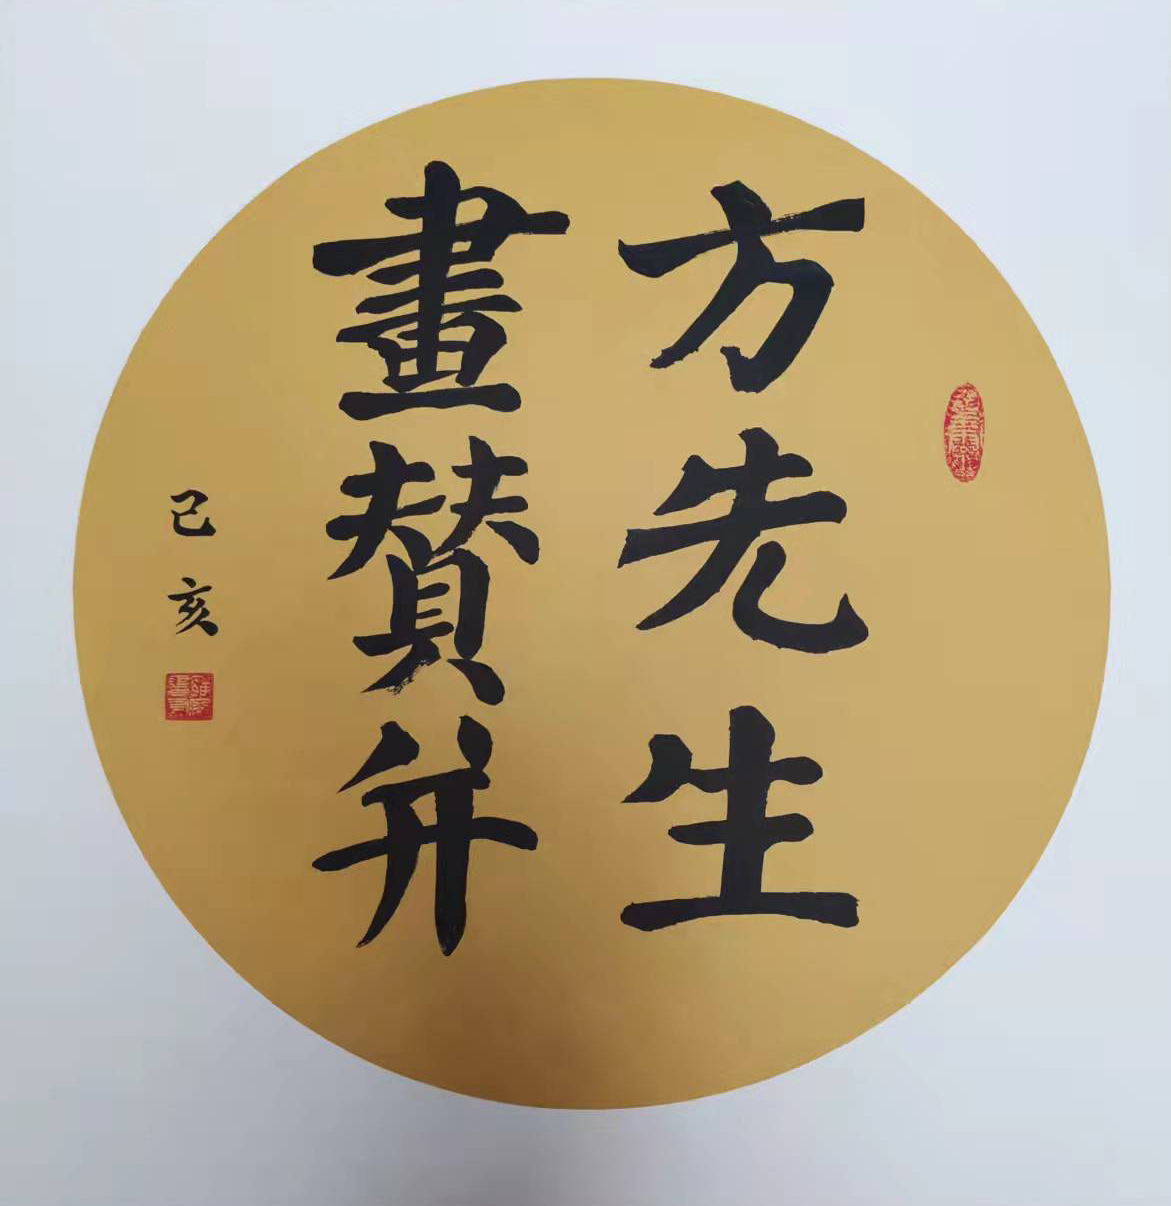 方先生
畫賛并
己亥